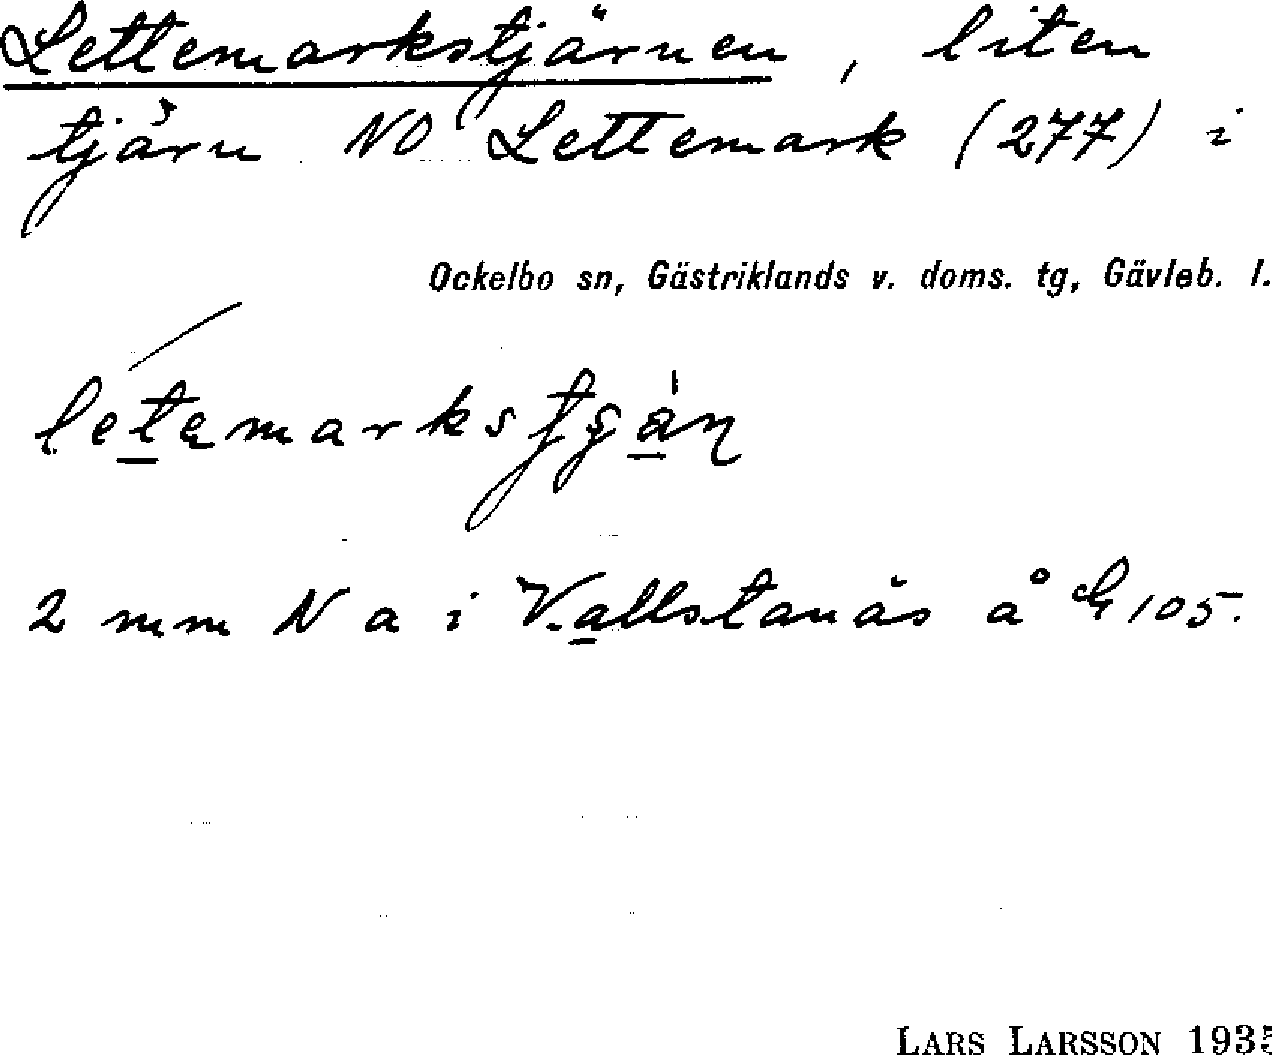 Lettemarkstjärnen, liten
tjärn NO Lettemark (277) i
Ockelbo sn, Gästriklands v. doms. tg, Gävleb. l.
2 mm N a i Vallstanäs å G 105.
LARS LARSSON 1935